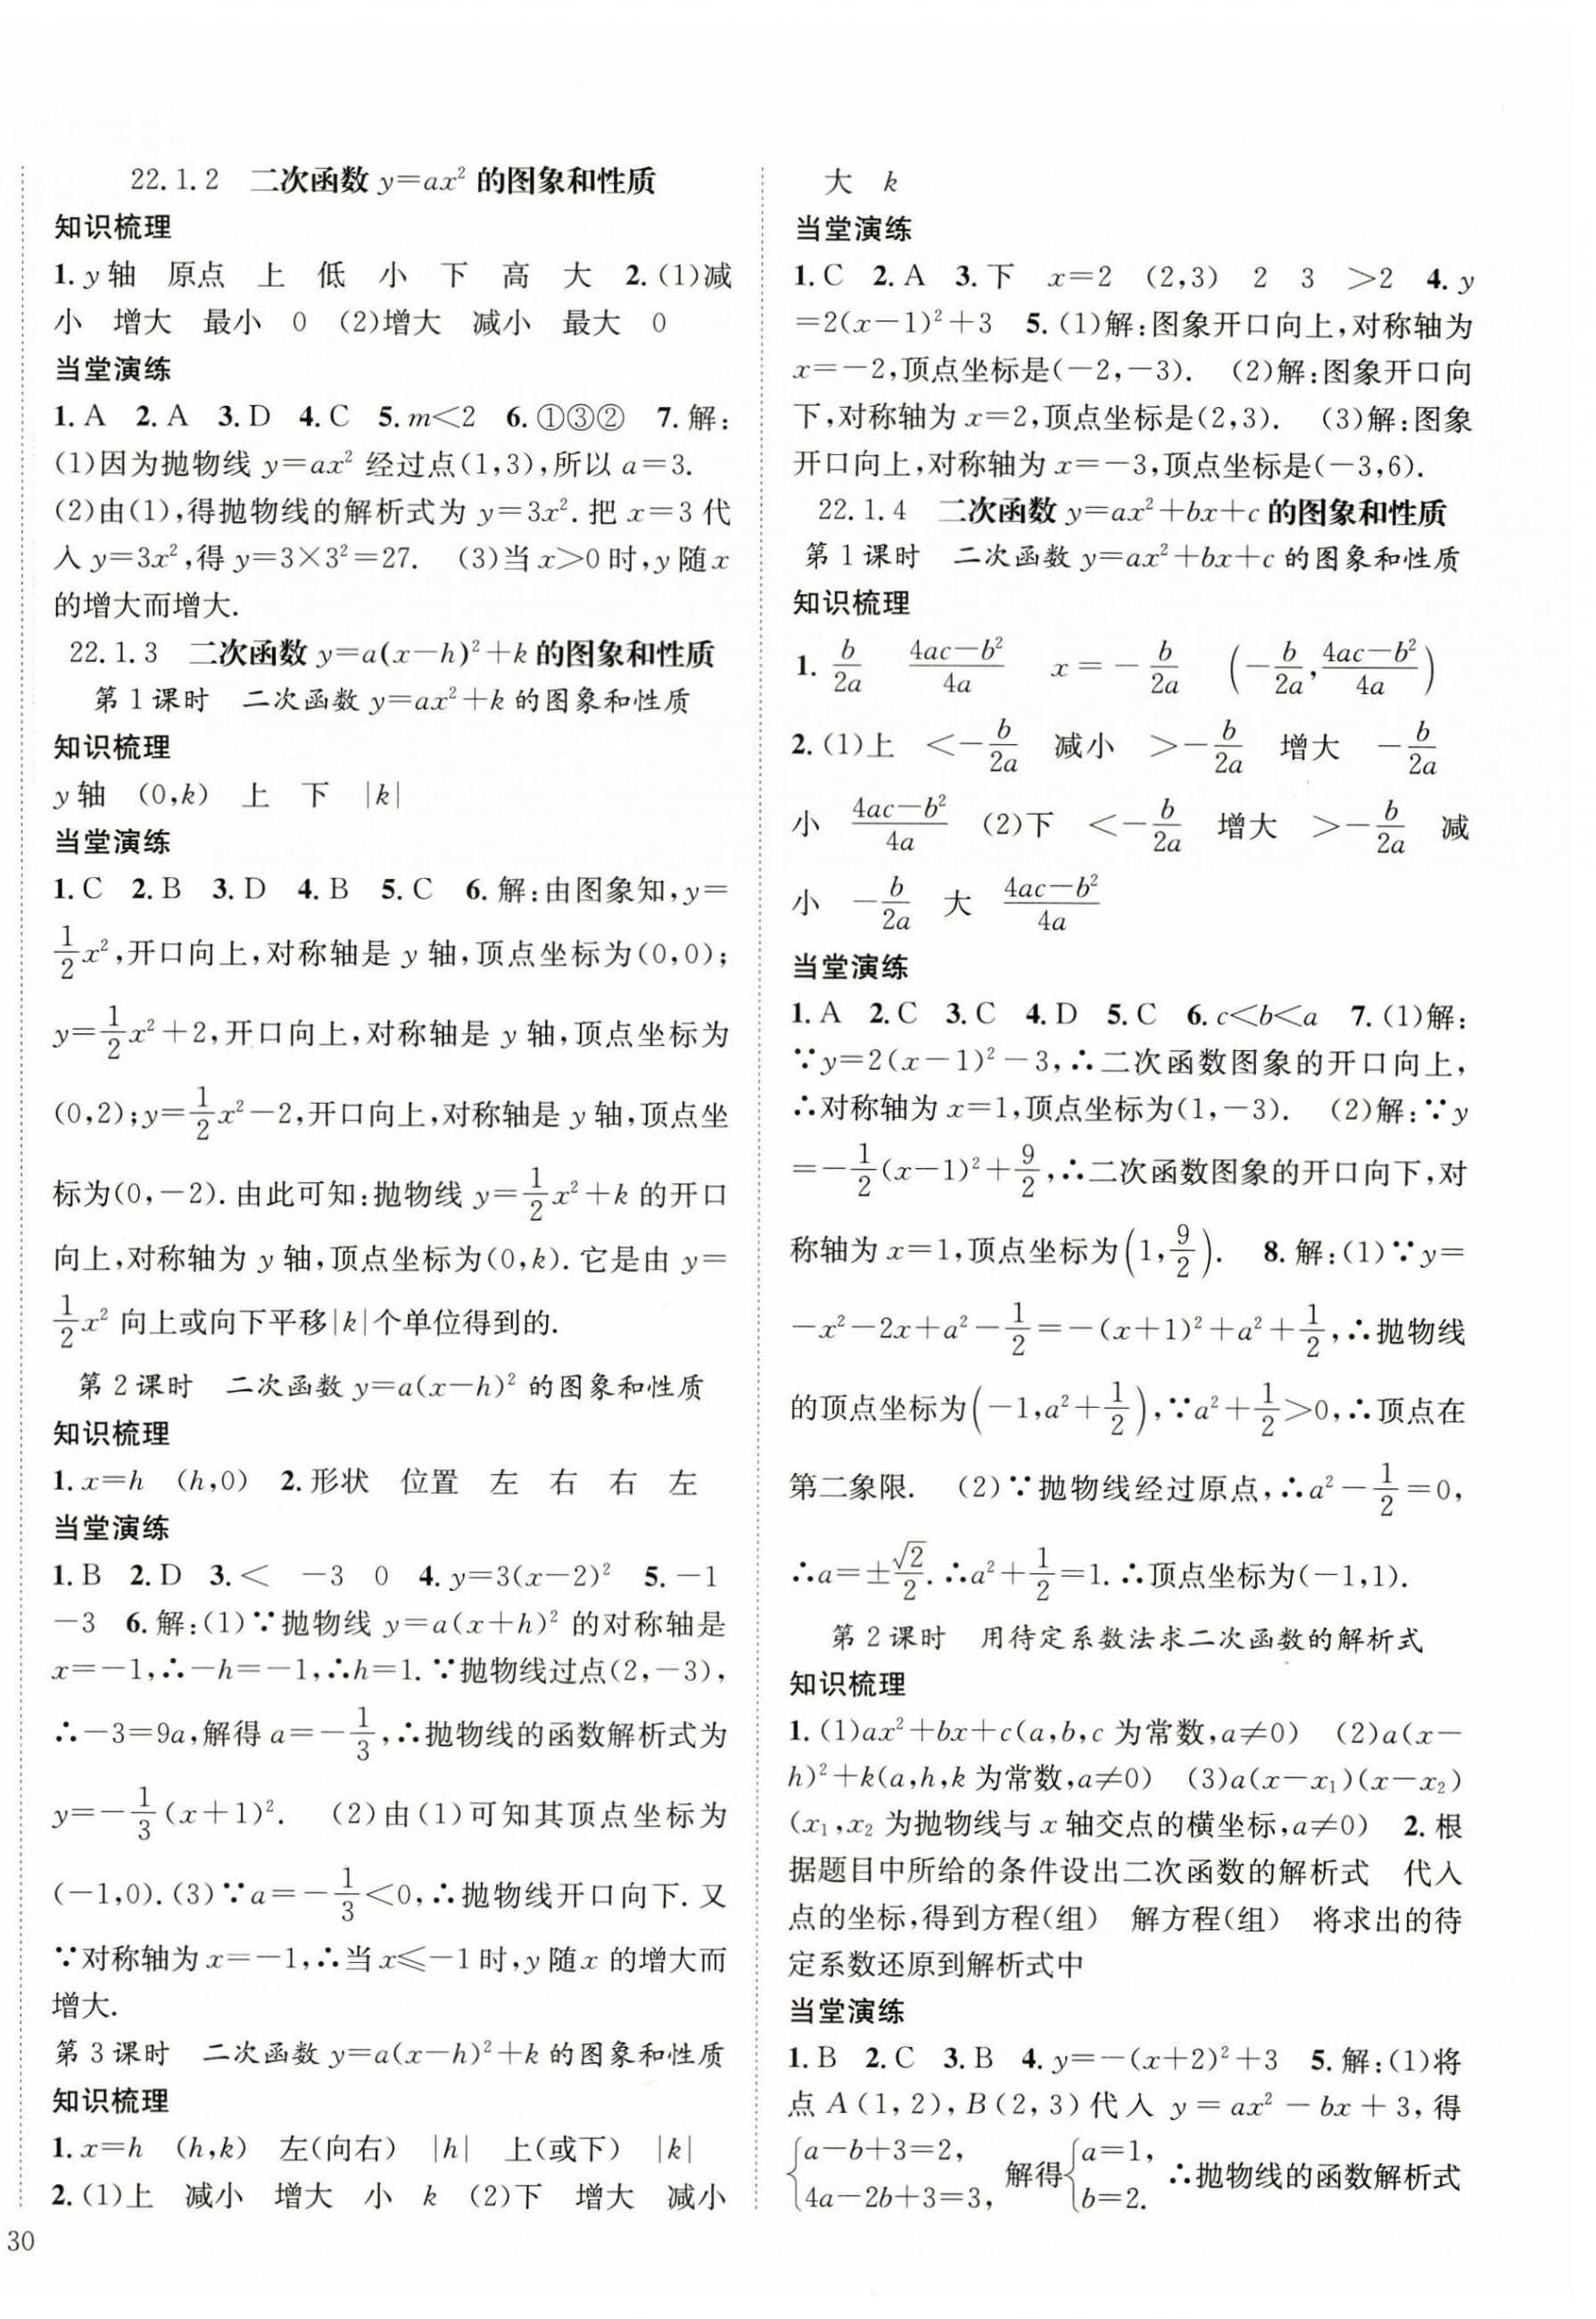 22.1.2 二次函数 y=ax² 的图象和性质
知识梳理
1. y 轴 原点 上 低 小 下 高 大 2. (1)减
小 增大 最小 0 (2)增大 减小 最大 0
当堂演练
1. A 2. A 3. D 4. C 5. m<2 6. ①③② 7. 解:
(1)因为抛物线 y=ax² 经过点(1,3),所以 a=3.
(2)由(1),得抛物线的解析式为 y=3x². 把 x=3 代
入 y=3x²,得 y=3×3²=27. (3)当 x>0 时,y 随 x
的增大而增大.
22.1.3 二次函数 y=a(x-h)²+k 的图象和性质
第 1 课时 二次函数 y=ax²+k 的图象和性质
知识梳理
y 轴 (0,k) 上 下 |k|
当堂演练
1. C 2. B 3. D 4. B 5. C 6. 解:由图象知,y=
1/2 x²,开口向上,对称轴是 y 轴,顶点坐标为(0,0);
y=1/2 x²+2,开口向上,对称轴是 y 轴,顶点坐标为
(0,2);y=1/2 x²-2,开口向上,对称轴是 y 轴,顶点坐
标为(0,-2). 由此可知:抛物线 y=1/2 x²+k 的开口
向上,对称轴为 y 轴,顶点坐标为(0,k). 它是由 y=
1/2 x² 向上或向下平移|k|个单位得到的.
第 2 课时 二次函数 y=a(x-h)² 的图象和性质
知识梳理
1. x=h (h,0) 2. 形状 位置 左 右 右 左
当堂演练
1. B 2. D 3. < -3 0 4. y=3(x-2)² 5. -1
-3 6. 解:(1)∵抛物线 y=a(x+h)² 的对称轴是
x=-1,∴-h=-1,∴h=1. ∵抛物线过点(2,-3),
∴-3=9a,解得 a=-1/3,∴抛物线的函数解析式为
y=-1/3(x+1)². (2)由(1)可知其顶点坐标为
(-1,0). (3)∵a=-1/3<0,∴抛物线开口向下. 又
∵对称轴为 x=-1,∴当 x≤-1 时,y 随 x 的增大而
增大.
第 3 课时 二次函数 y=a(x-h)²+k 的图象和性质
知识梳理
1. x=h (h,k) 左(向右) |h| 上(或下) |k|
2. (1)上 减小 增大 小 k (2)下 增大 减小
30
大 k
当堂演练
1. C 2. A 3. 下 x=2 (2,3) 2 3 >2 4. y
=2(x-1)²+3 5. (1)解:图象开口向上,对称轴为
x=-2,顶点坐标是(-2,-3). (2)解:图象开口向
下,对称轴为 x=2,顶点坐标是(2,3). (3)解:图象
开口向上,对称轴为 x=-3,顶点坐标是(-3,6).
22.1.4 二次函数 y=ax²+bx+c 的图象和性质
第 1 课时 二次函数 y=ax²+bx+c 的图象和性质
知识梳理
1. b/2a (4ac-b²)/4a x=-b/2a (-b/2a,(4ac-b²)/4a)
2. (1)上 <-b/2a 减小 >-b/2a 增大 -b/2a
小 (4ac-b²)/4a (2)下 <-b/2a 增大 >-b/2a 减
小 -b/2a 大 (4ac-b²)/4a
当堂演练
1. A 2. C 3. C 4. D 5. C 6. c<b<a 7. (1)解:
∵y=2(x-1)²-3,∴二次函数图象的开口向上,
∴对称轴为 x=1,顶点坐标为(1,-3). (2)解:∵y
=-1/2(x-1)²+9/2,∴二次函数图象的开口向下,对
称轴为 x=1,顶点坐标为(1,9/2). 8. 解:(1)∵y=
-x²-2x+a²-1/2=-(x+1)²+a²+1/2,∴抛物线
的顶点坐标为(-1,a²+1/2),∵a²+1/2>0,∴顶点在
第二象限. (2)∵抛物线经过原点,∴a²-1/2=0,
∴a=±√2/2. ∴a²+1/2=1. ∴顶点坐标为(-1,1).
第 2 课时 用待定系数法求二次函数的解析式
知识梳理
1. (1)ax²+bx+c(a,b,c 为常数,a≠0) (2)a(x-
h)²+k(a,h,k 为常数,a≠0) (3)a(x-x₁)(x-x₂)
(x₁,x₂ 为抛物线与 x 轴交点的横坐标,a≠0) 2. 根
据题目中所给的条件设出二次函数的解析式 代入
点的坐标,得到方程(组) 解方程(组) 将求出的待
定系数还原到解析式中
当堂演练
1. B 2. C 3. B 4. y=-(x+2)²+3 5. 解:(1)将
点 A(1,2),B(2,3)代入 y=ax²-bx+3,得
{a-b+3=2, 4a-2b+3=3, 解得{a=1, b=2. ∴抛物线的函数解析式